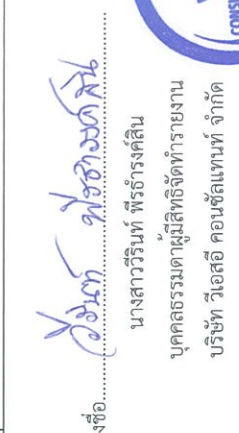 งชื่อ........วีรินท์ พีรธำรงค์สิน........
นางสาววีรินท์ พีรธำรงค์สิน
บุคคลธรรมดาผู้มีสิทธิจัดทำรายงาน
บริษัท วีเอสอี คอนซัลแทนท์ จำกัด
CONSU